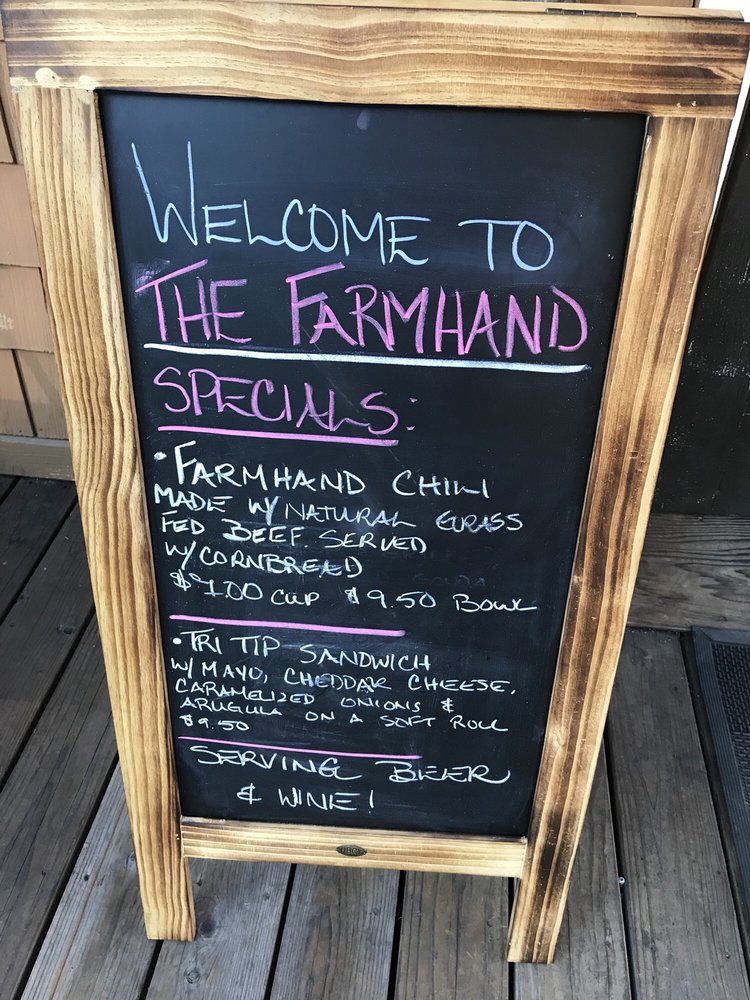 WELCOME TO
THE FARMHAND
SPECIALS:
• FARMHAND CHILI
MADE W/ NATURAL GRASS
FED BEEF SERVED
W/ CORNBREED
CUP $9.50 BOWL
• TRI TIP SANDWICH
W/ MAYO, CHEDDAR CHEESE,
CARAMELIZED ONIONS &
ARUGULA ON A SOFT ROLL
$9.50
SERVING BEER
& WINE!